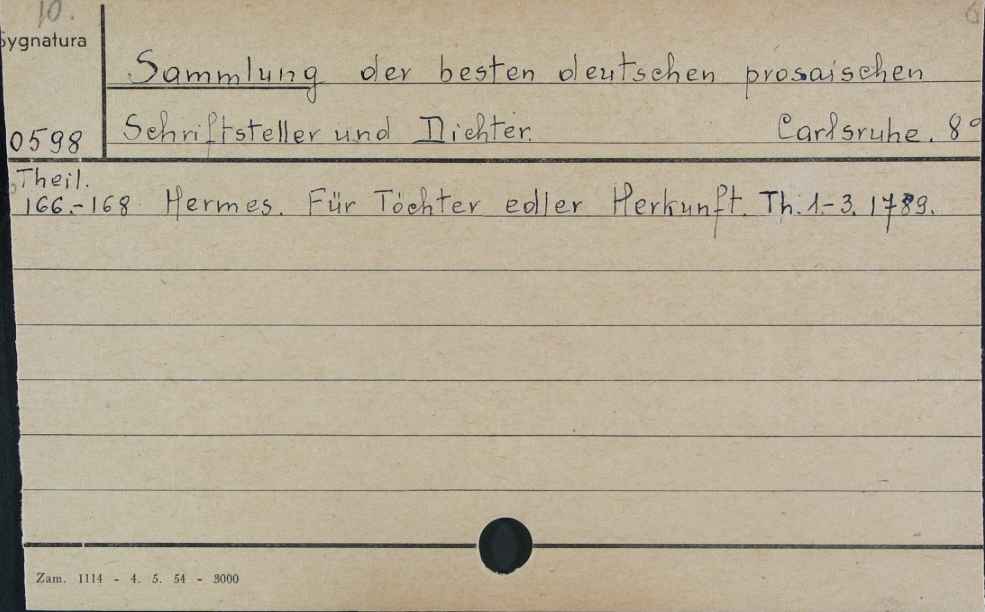 10.
Sygnatura
Sammlung der besten deutschen prosaischen
0598 Schriftsteller und Dichter. Carlsruhe. 8°
Theil.
166.-168 Hermes. Für Töchter edler Herkunft. Th. 1-3. 1789.
Zam. 1114 - 4. 5. 54 - 3000